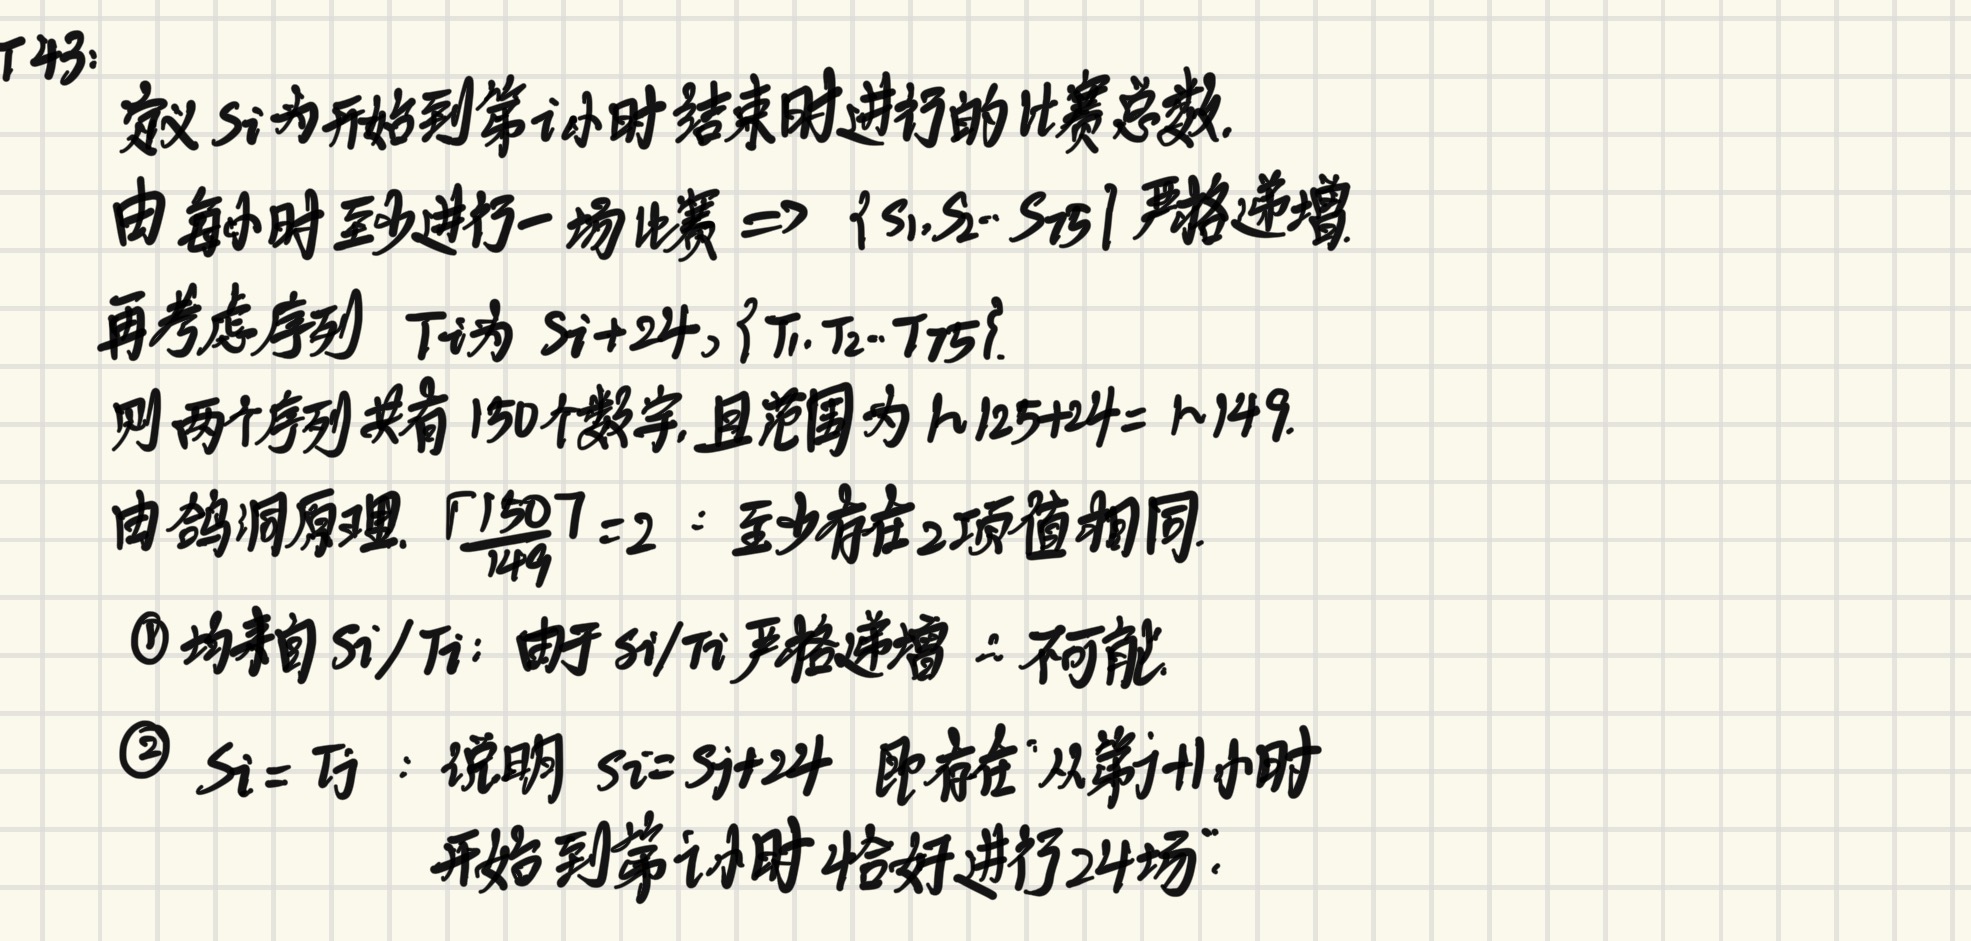 T43:
定义 Si 为开始到第 i 小时结束时进行的比赛总数.
由每小时至少进行一场比赛 => {S1,S2…S75} 严格递增.
再考虑序列 Ti为 Si+24,{T1.T2…T75}.
则两个序列共有150个数字,且范围为1~125+24=1~149.
由鸽洞原理.⌈150/149⌉=2 ∴至少存在2项值相同.
① 均来自Si/Ti:由于Si/Ti严格递增 ∴不可能.
② Si=Tj :说明 Si=Sj+24 即存在“从第j+1小时
开始到第i小时恰好进行24场”.